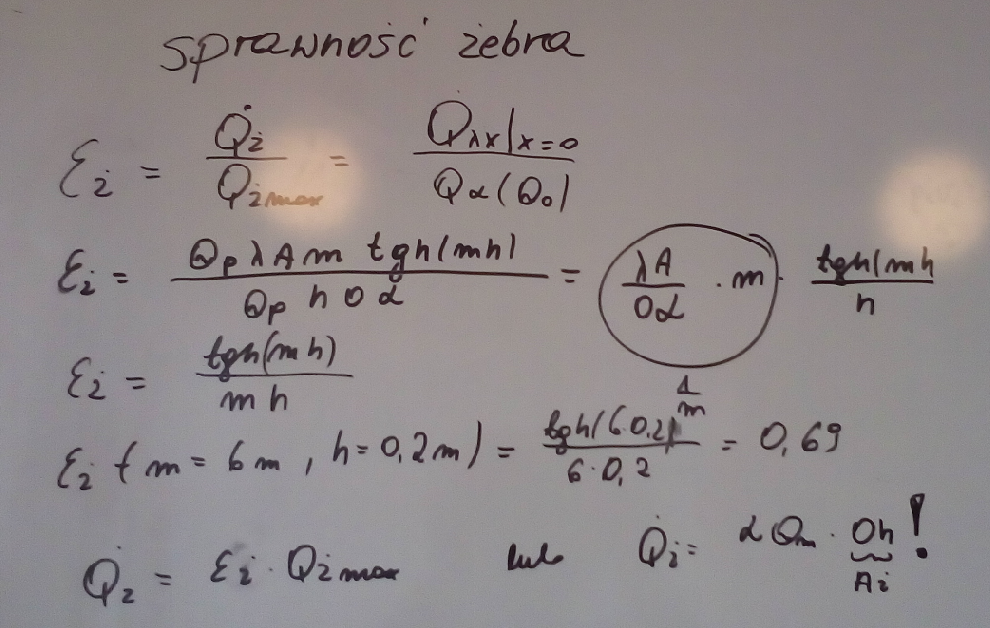 sprawność żebra
εż = Q̇ż / Qżmax = Q̇λx|x=0 / Qα(Θ0)
εż = Θp λ A m tgh(mh) / Θp h O α = λA / Oα · m · tgh(mh / h
1/m
εż = tgh(mh) / mh
εż (m = 6m, h=0,2m) = tgh(6·0,2) / 6·0,2 = 0,69
Q̇ż = εż · Qżmax lub Q̇ż = α Θm · Oh !
Aż